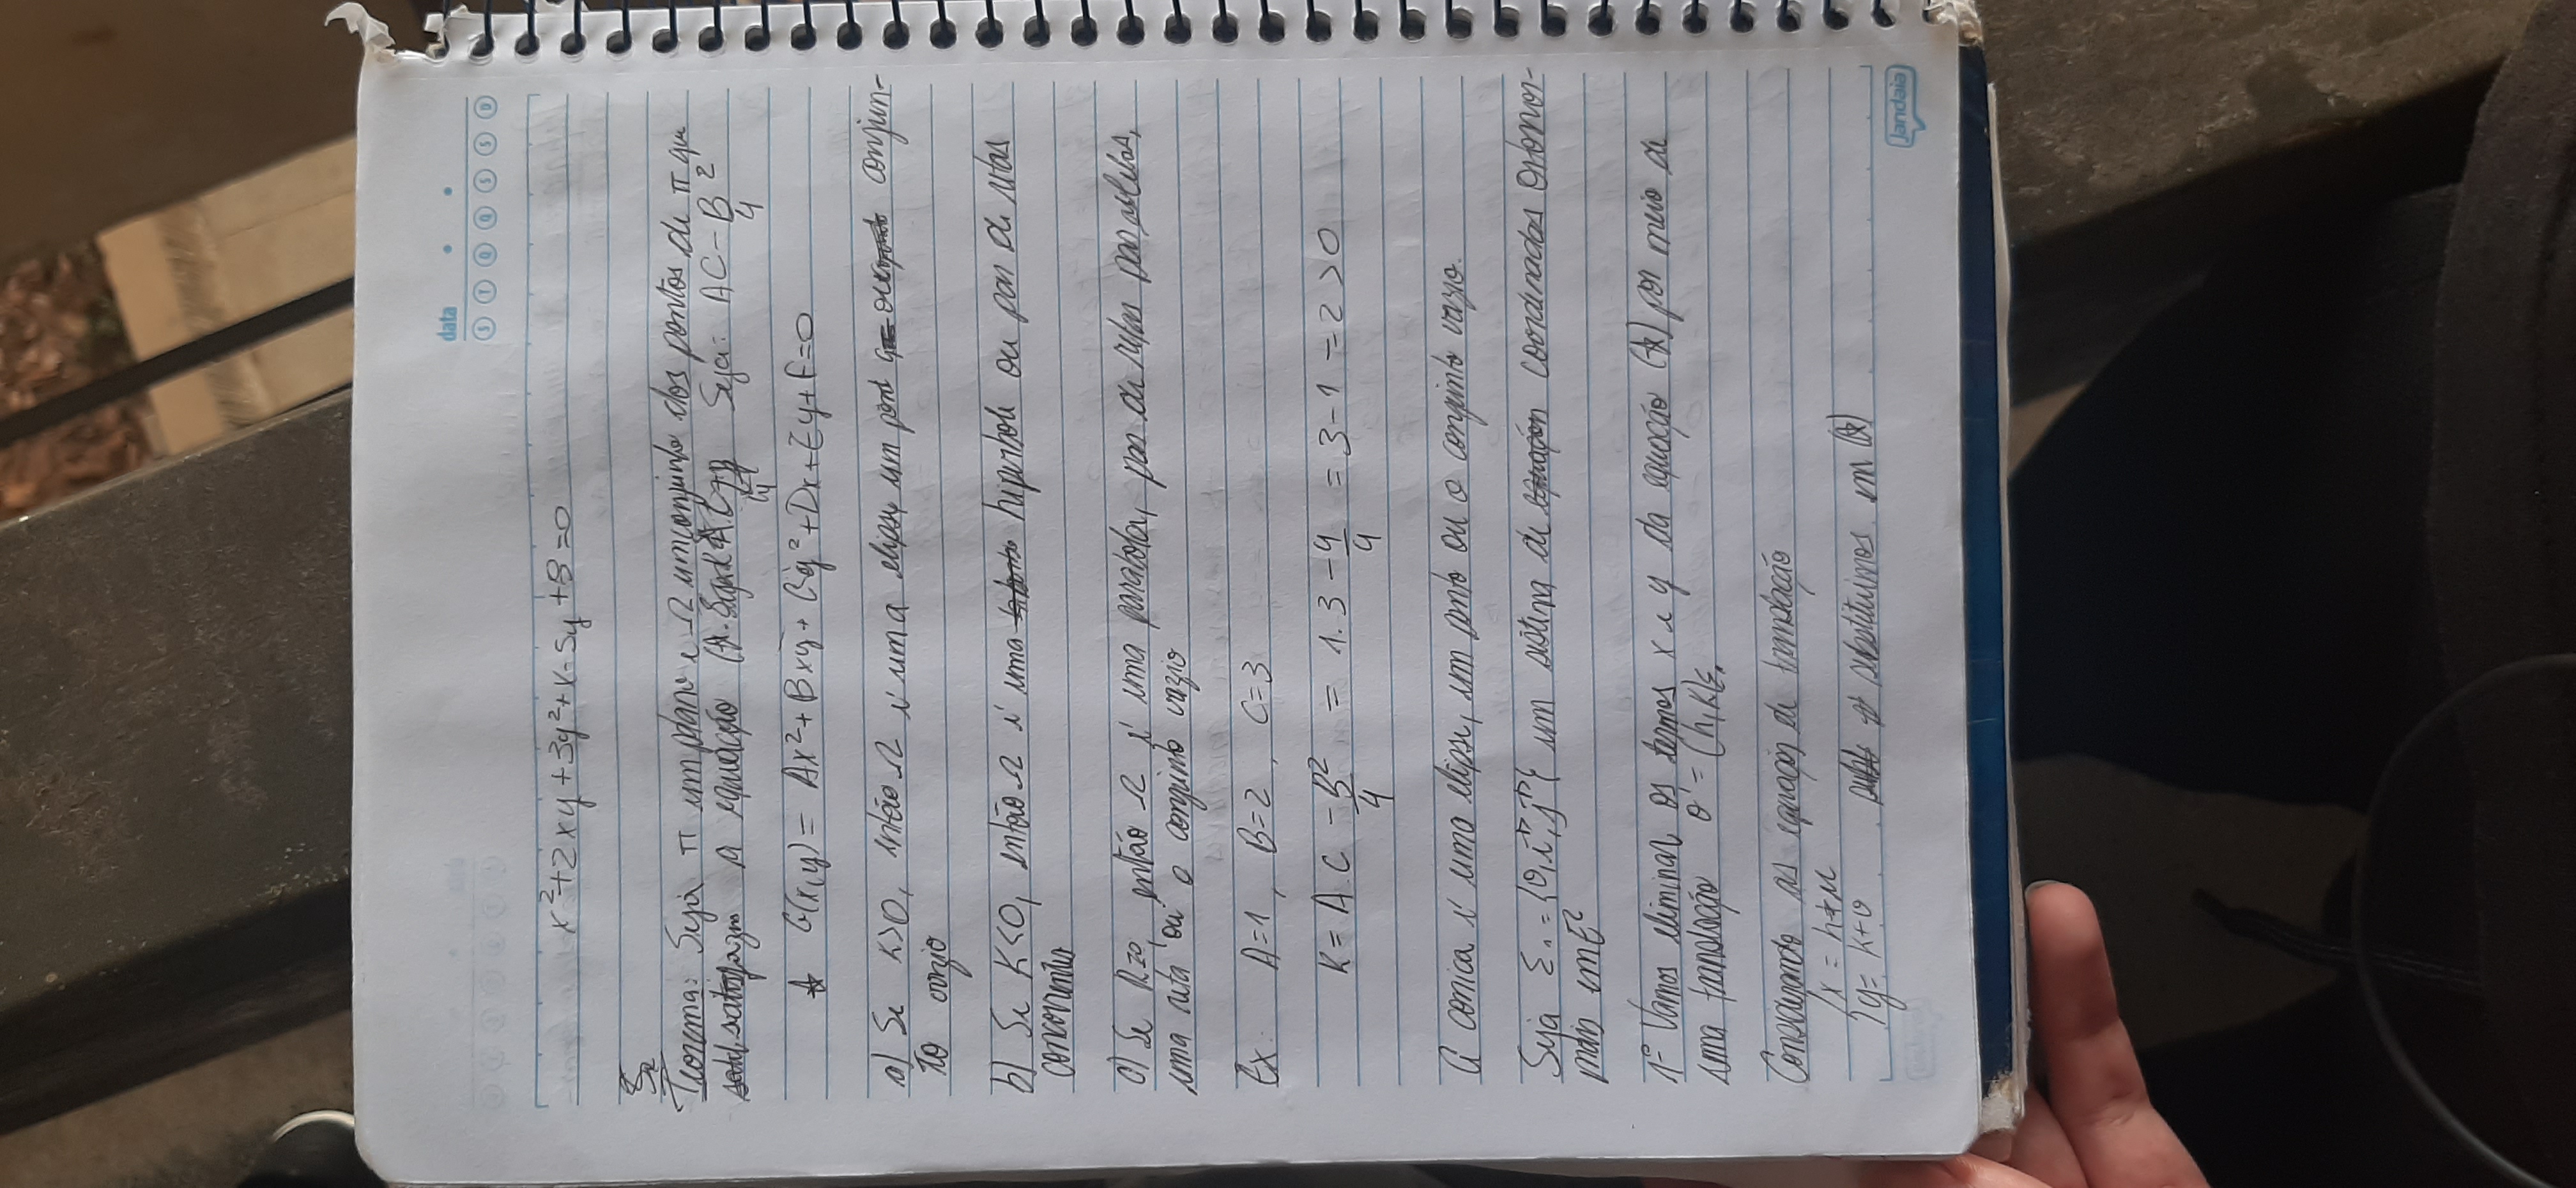 data
S T Q Q S S D
x² + 2xy + 3y² + x - 5y + 8 = 0
Teorema: Seja π um plano e Ω um conjunto dos pontos de π que
satisfazem a equação Seja: AC - B²/4
☆ G(x,y) = Ax² + Bxy + Cy² + Dx + Ey + F = 0
a) Se K>0, então Ω é uma elipse, um conjun-
to vazio
b) Se K<0, então Ω é uma hipérbole ou par de retas
concorrentes
c) Se K=0, então Ω é uma parábola, par de retas paralelas,
uma reta ou o conjunto vazio
Ex: A=1, B=2, C=3
K = A.C - B²/4 = 1.3 - 4/4 = 3 - 1 = 2 > 0
A conica é uma elipse, um ponto ou o conjunto vazio.
Seja Σ₁ = {O, i, j} um sistema de coordenadas Ortonor-
mais em E²
1º Vamos eliminar os termos x e y da equação (☆) por meio de
uma translação O' = (h,k)Σ₁
Considerando as equações de translação
{x = h+u
{y = k+v substituimos em (☆)
Jandaia